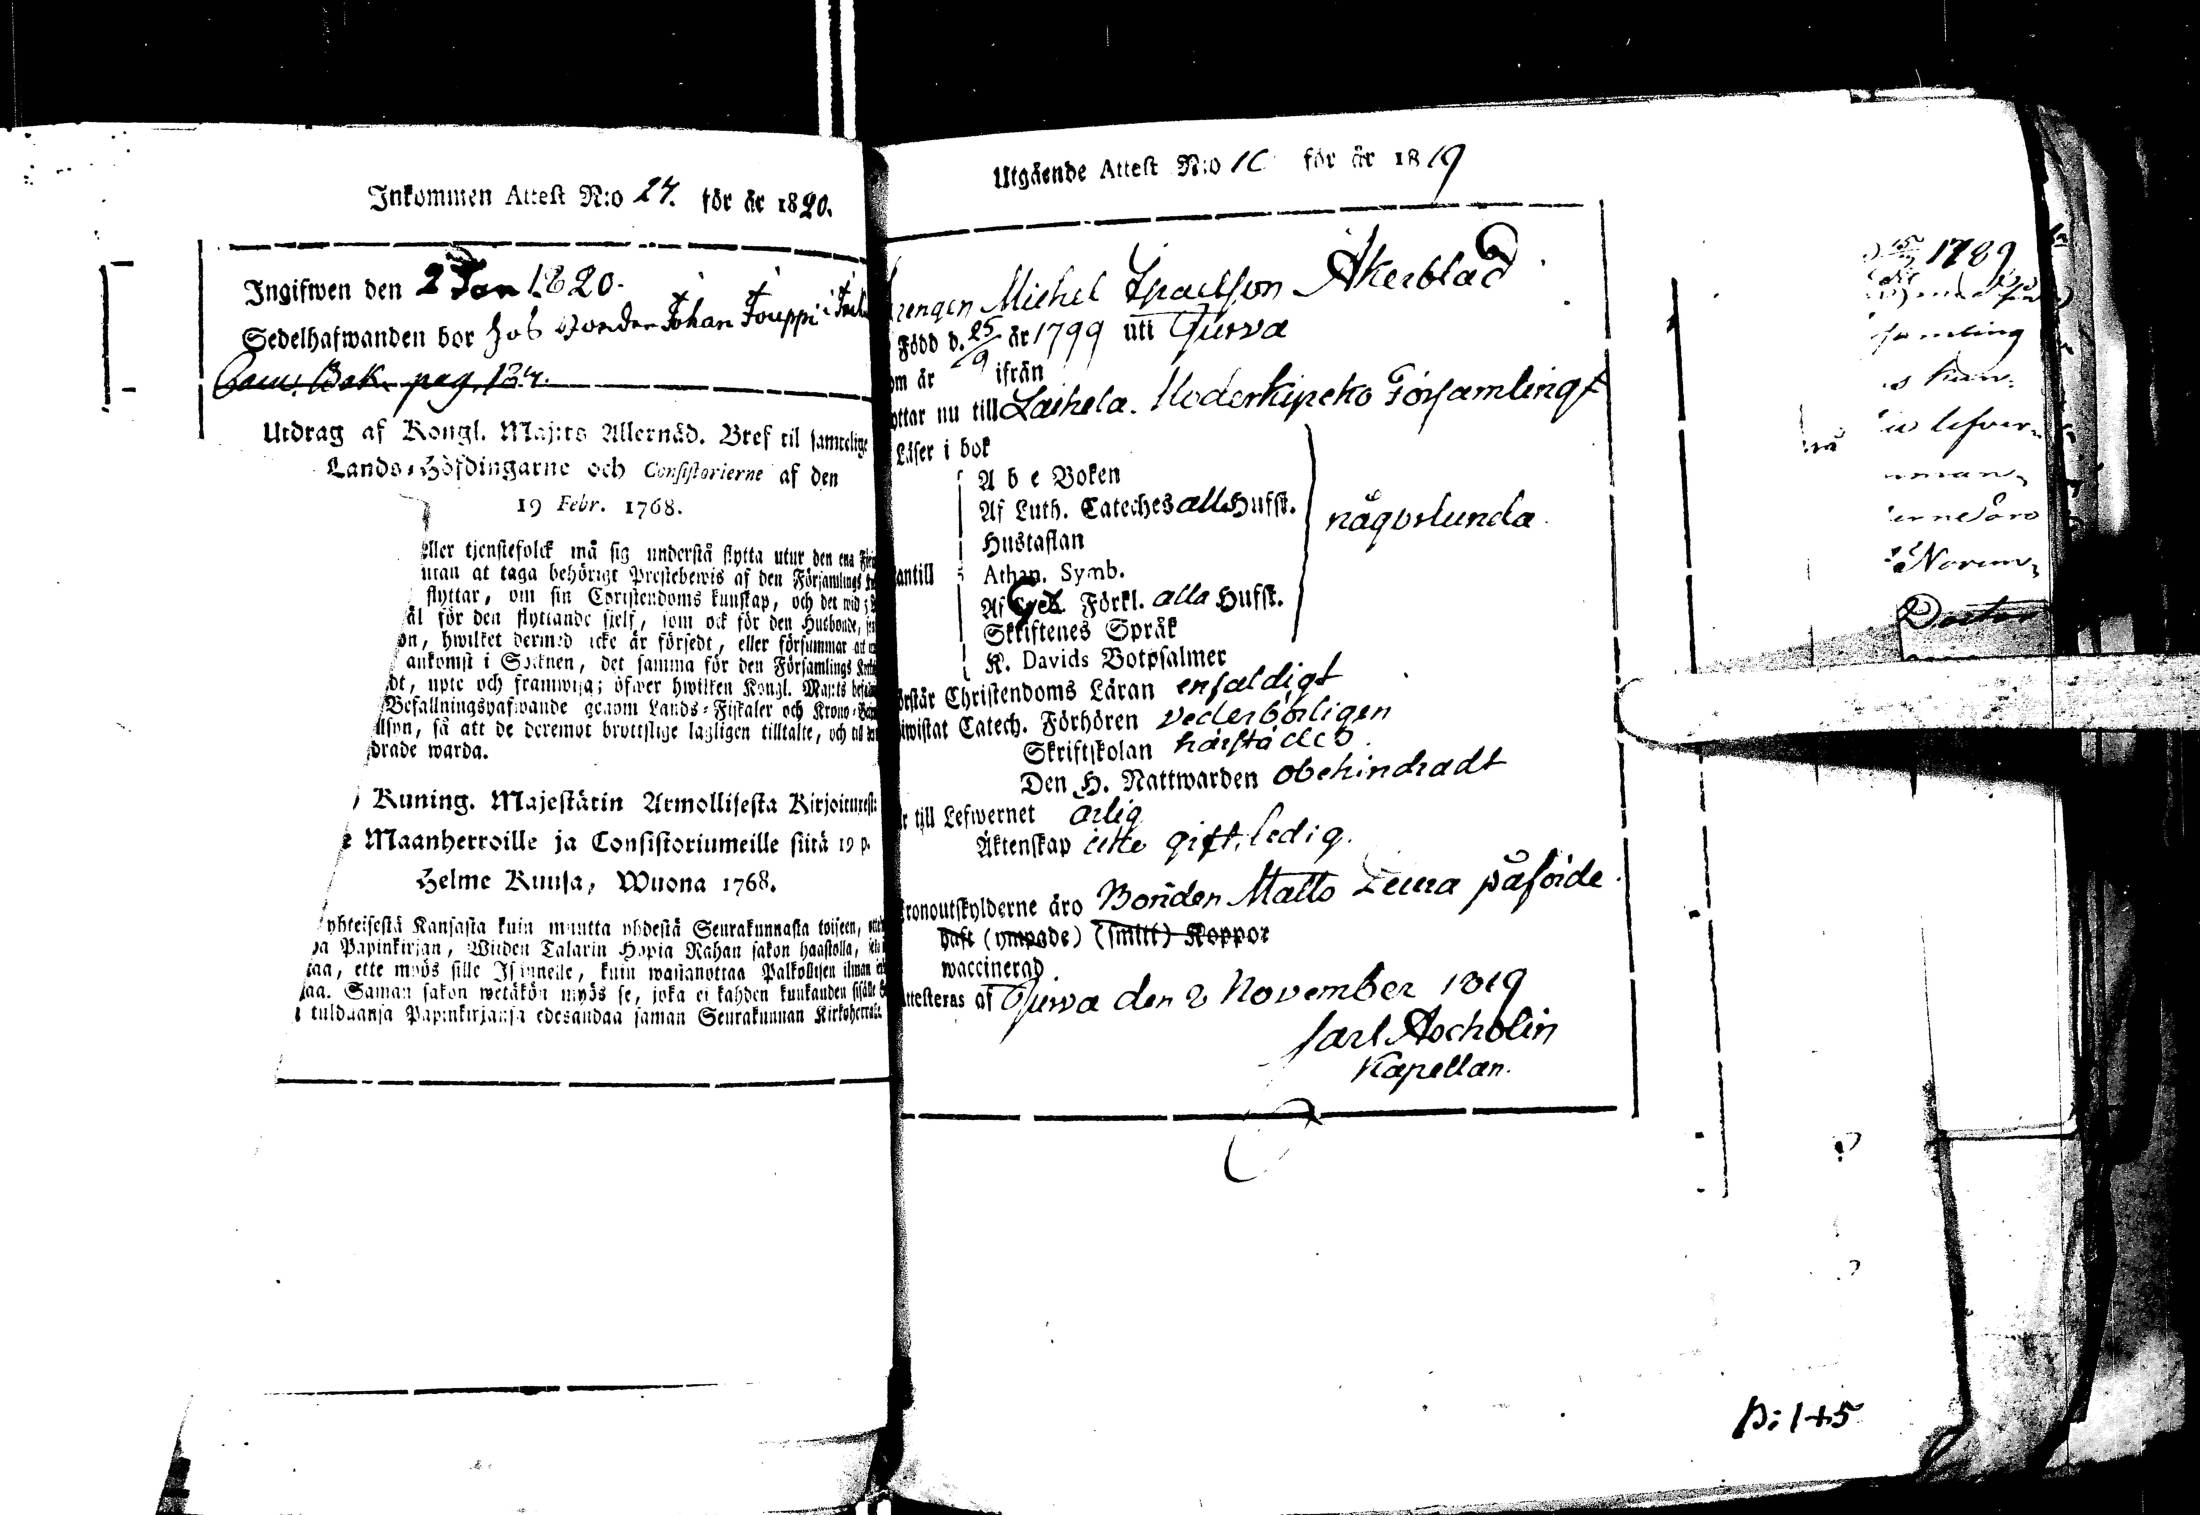 Inkommen Attest N:o 27. för år 1820.
Ingifwen den 2 Jan 1820.
Sedelhafwanden bor hos Bonden Johan Jouppi i
Bok. pag. 124.
Utdrag af Kongl. Maj:ts Allernåd. Bref til samtelige
Lands-Höfdingarne och Consistorierne af den
19 Febr. 1768.
eller tjenstefolck må sig understå flytta utur den ena
utan at taga behörigt Prestebewis af den Församlings
flyttar, om sin Christendoms kunskap, och det wid
äl för den flyttande sjelf, som ock för den Husbonde,
on, hwilket dermed icke är försedt, eller försummar att
ankomst i Socknen, det samma för den Församlings
dt, upte och framwisa; öfwer hwilken Kongl. Maj:ts
Befallningshafwande genom Lands-Fiskaler och Krono-
llson, så att de deremot brottslige lagligen tilltalte, och
drade warda.
Kuning. Majestätin Armollisesta Kirjoituxest
Maanherroille ja Consistoriumeille siitä 19 p.
Helme Kuusa, Wuona 1768.
yhteisestä Kansasta kuin muutta yhdestä Seurakunnasta toiseen,
Papinkirjan, Wiiden Talarin Hopia Rahan sakon haastolla,
taa, ette myös sille Isännelle, kuin wastanottaa Palkollisen ilman
aa. Saman sakon wetäkön myös se, joka ei kahden kuukauden sisälle
tulduansa Papinkirjansa edesandaa saman Seurakunnan Kirkoherralle
Utgående Attest N:o 10 för år 1819
Drengen Michel Israelsson Åkerblad
Född d. 25/9 år 1799 uti Jurva
om år ifrån
yttar nu till Laihela Moderkyrcko Församling
Läser i bok
A b c Boken
Af Luth. Cateches alla Hufst.
Hustaflan
någorlunda
antill
Athan. Symb.
Af Förkl. alla Hufst.
Skriftenes Språk
K. Davids Botpsalmer
örstår Christendoms Läran enfaldigt
iwistat Catech. Förhören vederbörligen
Skriftskolan härstädes
Den H. Nattwarden obehindradt
r till Lefwernet ärlig
Äktenskap icke gift, ledig.
Kronoutskylderne äro Bonden Matts påförde.
haft (ympade) (smitt) Koppor
waccinerad
Attesteras af Jurva den 2 November 1819
Carl Aschólin
Kapellan.
1789
Norum
p: 145